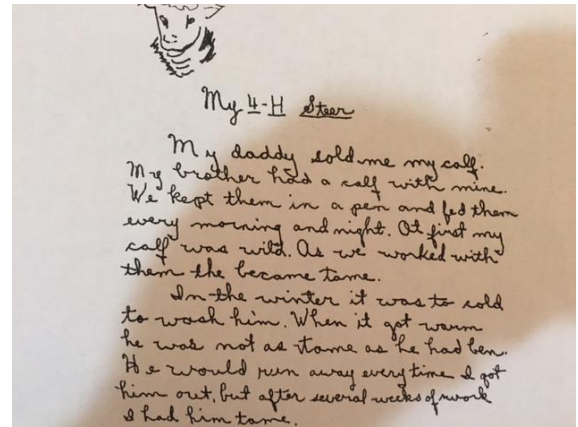 My 4-H Steer
My daddy sold me my calf.
My brother had a calf with mine.
We kept them in a pen and fed them
every morning and night. At first my
calf was wild. As we worked with
them the became tame.
In the winter it was to cold
to wash him. When it got warm
he was not as tame as he had ben.
He would run away everytime I got
him out, but after several weeks of work
I had him tame.